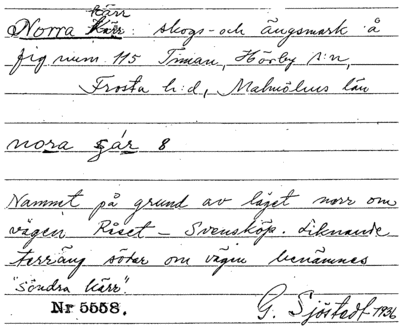 kärr
Norra Kärr: skogs- och ängsmark å
fig num 115 Timan, Hörby s:n,
Frosta h:d, Malmöhus län
nora şár 8
Namnet på grund av läget norr om
vägen Röset - Svensköp. Liknande
terräng söder om vägen benämnes
"södra kärr".
Nr 5558. G. Sjöstedt 1936